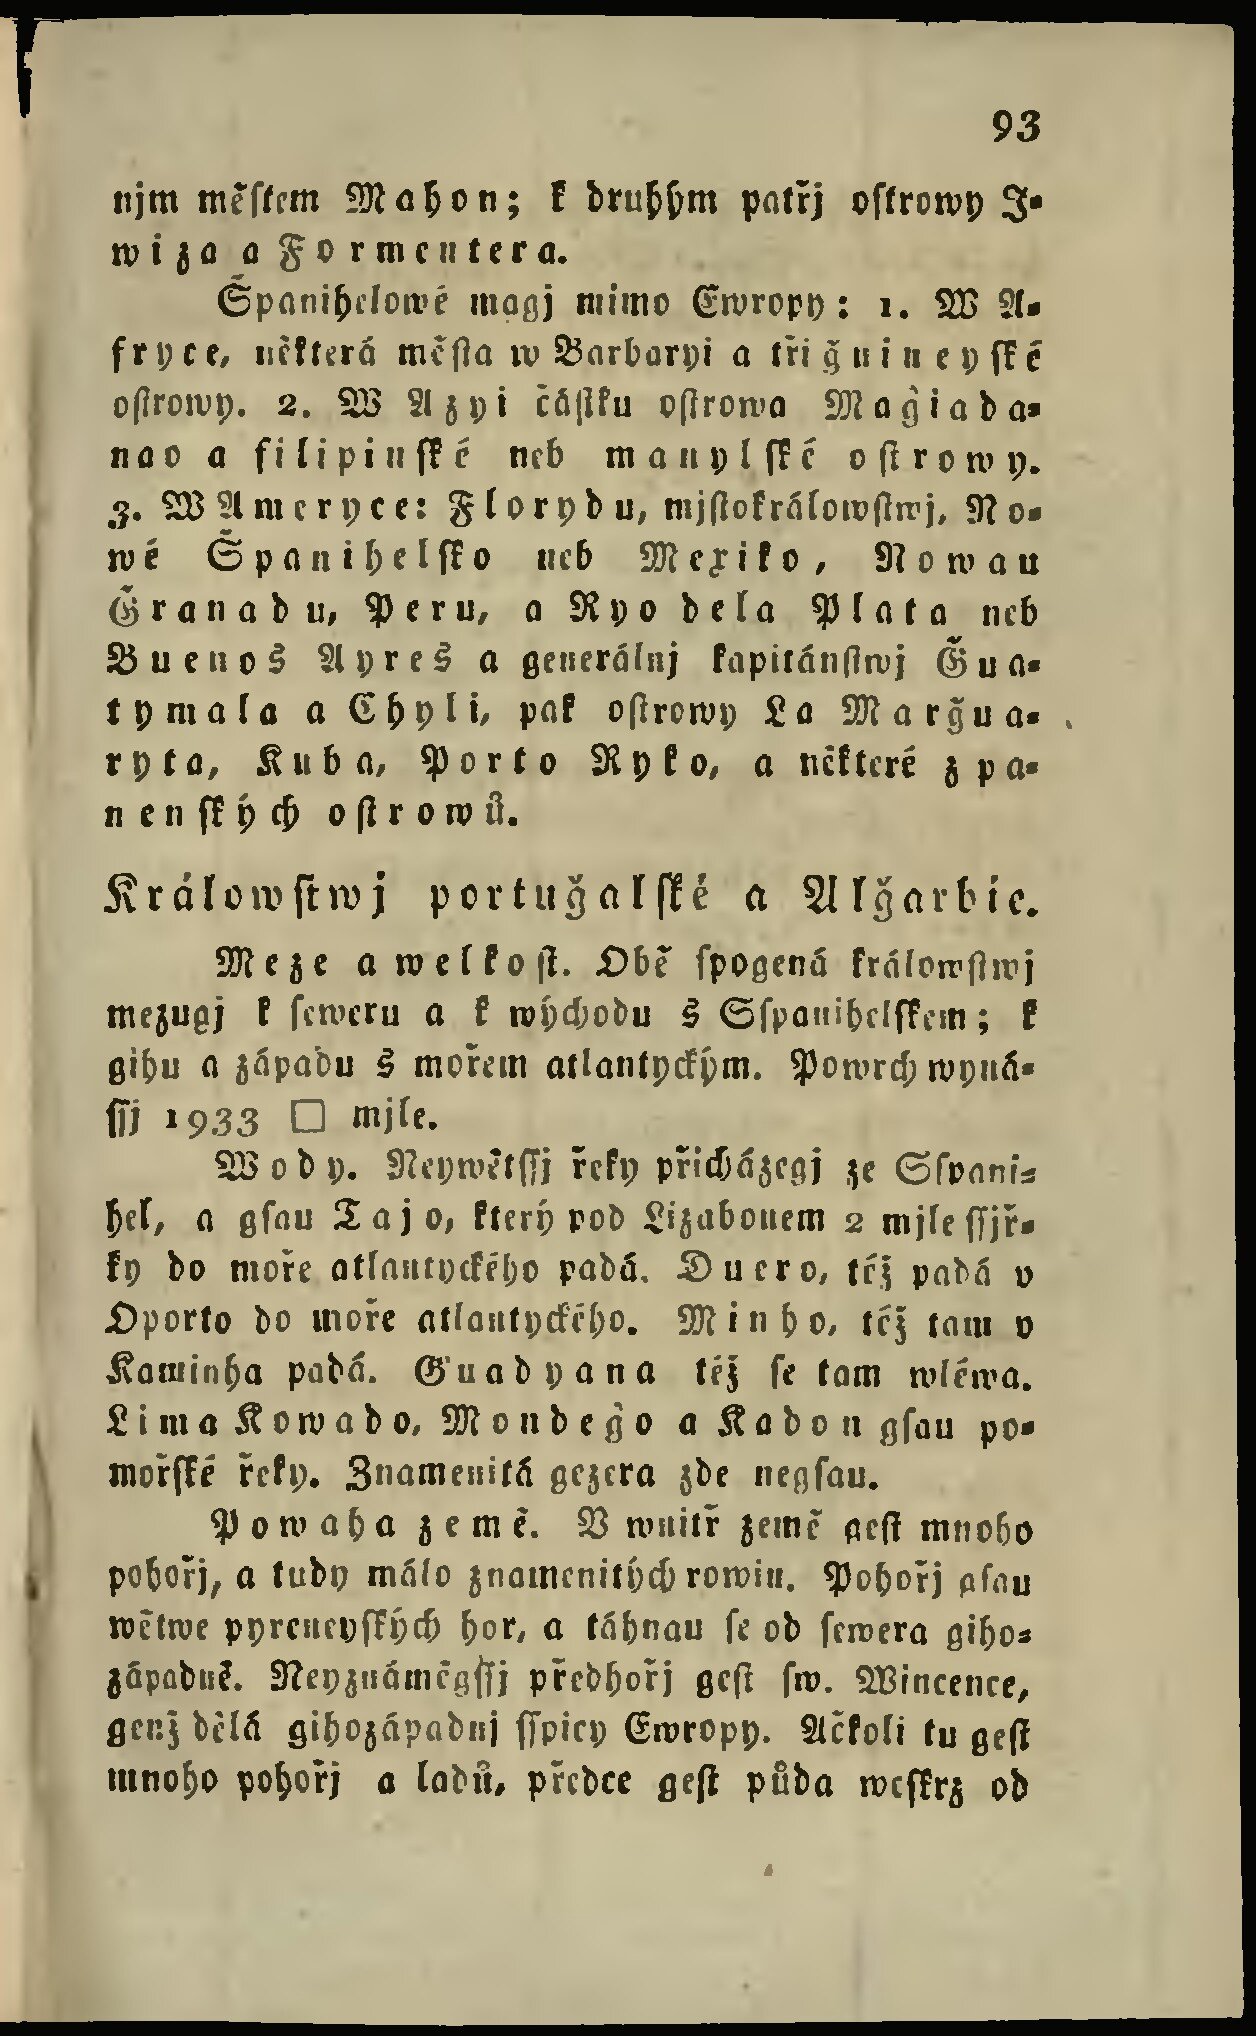 93
njm měſtem Mahon; k druhým patřj oſtrowy J-
wiza a Formentera.
Španiheloẃé magj mimo Ewropy: 1. W A-
fryce, některá měſta w Barbaryi a třiǧuineyſké
oſtrowy. 2. W Azyi čáſtku oſtrowa Maǧiada-
nao a filipinſké neb manylſké oſtrowy.
3. W Ameryce: Florydu, mjſtokrálowſtwj, No-
wé Španihelſko neb Mexiko, Nowau
Ǧranadu, Peru, a Ryo dela Plata neb
Buenos Ayres a generálnj kapitánſtwj Ǧua-
tymala a Chyli, pak oſtrowy La Marǧua-
ryta, Kuba, Porto Ryko, a některé z pa-
nenſkých oſtrowů.
Králowſtwj portuǧalſké a Alǧarbie.
Meze a welkoſt. Obě ſpogená králowſtwj
mezugj k ſeweru a k wýchodu s Sſpanihelſkem; k
gihu a západu s mořem atlantyckým. Powrch wyná-
ſſj 1933 □ mjle.
Wody. Neywětſſj řeky přicházegj ze Sſpani-
hel, a gſau Tajo, který pod Lizabonem 2 mjle ſſjř-
ky do moře atlantyckého padá. Duero, též padá v
Oporto do moře atlantyckého. Minho, též tam v
Kaminha padá. Guadyana též ſe tam wléwa.
Lima Kowado, Mondeǧo a Kadon gſau po-
mořſké řeky. Znamenitá gezera zde negſau.
Powaha země. V wnitř země geſt mnoho
pohořj, a tudy málo znamenitých rowin. Pohořj gſau
wětwe pyreneyſkých hor, a táhnau ſe od ſewera giho-
západně. Neyznáměgſſj předhořj geſt ſw. Wincence,
genž dělá gihozápadnj ſſpicy Ewropy. Ačkoli tu geſt
mnoho pohořj a ladů, předce geſt půda weſkrz od